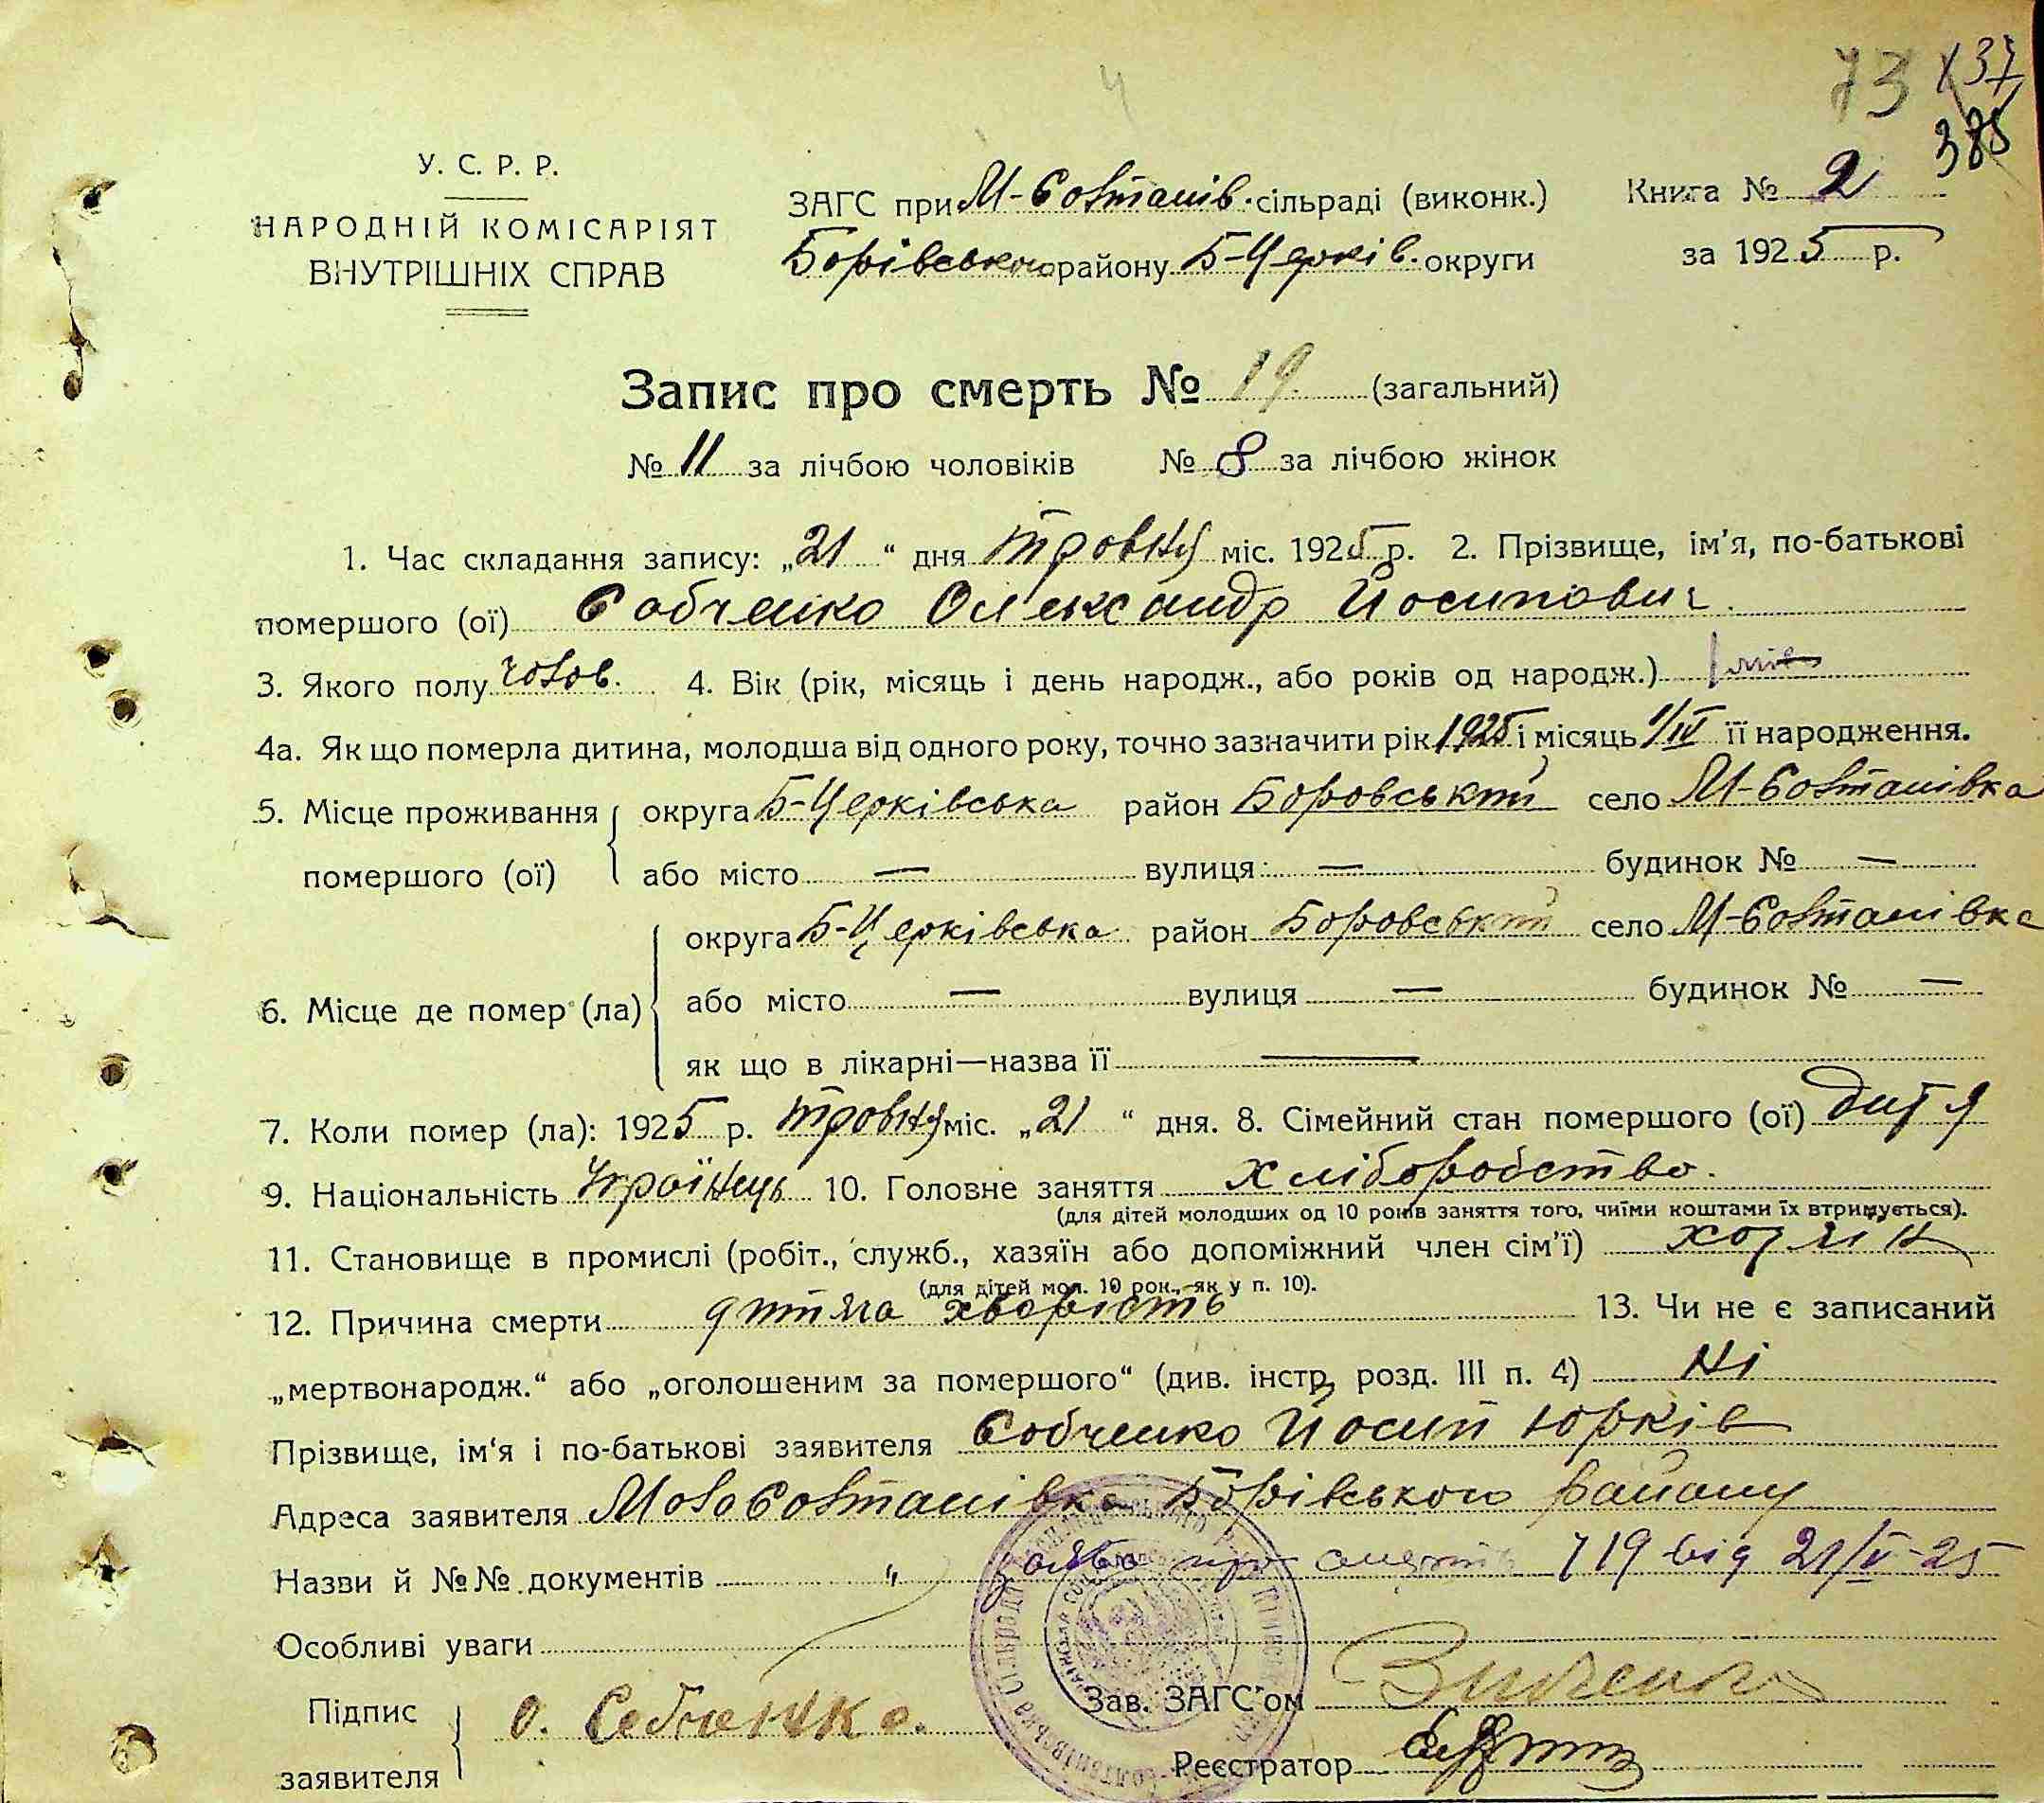 73 137
385
У. С. Р. Р.
НАРОДНІЙ КОМІСАРІЯТ
ВНУТРІШНІХ СПРАВ
ЗАГС при М-Солтанів. сільраді (виконк.)
Борівського району Б-Церків. округи
Книга № 2
за 1925 р.
Запис про смерть № 19 (загальний)
№ 11 за лічбою чоловіків № 8 за лічбою жінок
1. Час складання запису: „21“ дня травня міс. 1925 р. 2. Прізвище, ім'я, по-батькові
помершого (ої) Собченко Олександр Йосипович
3. Якого полу чолов. 4. Вік (рік, місяць і день народж., або років од народж.) 1
4а. Як що померла дитина, молодша від одного року, точно зазначити рік 1925 і місяць 1/IV її народження.
5. Місце проживання округа Б-Церківська район Боровський село М-Солтанівка
помершого (ої) або місто — вулиця: — будинок № —
округа Б-Церківська район Боровський село М-Солтанівка
6. Місце де помер (ла) або місто — вулиця — будинок № —
як що в лікарні—назва її —
7. Коли помер (ла): 1925 р. травня міс. „21“ дня. 8. Сімейний стан помершого (ої) дитя
9. Національність Українець 10. Головне заняття хліборобство.
(для дітей молодших од 10 років заняття того, чиїми коштами їх втримується).
11. Становище в промислі (робіт., служб., хазяїн або допоміжний член сім'ї) хазяїн
(для дітей мол. 10 рок., як у п. 10).
12. Причина смерти дитяча хворість 13. Чи не є записаний
„мертвонародж.“ або „оголошеним за помершого“ (див. інстр, розд. III п. 4) Ні
Прізвище, ім'я і по-батькові заявителя Собченко Йосип Юрків
Адреса заявителя МалоСолтанівка Борівського району
Назви й №№ документів " заява про смерть 719 від 21/V-25
Особливі уваги
Підпис
заявителя
О. Собченко.
Зав. ЗАГС'ом
Реєстратор